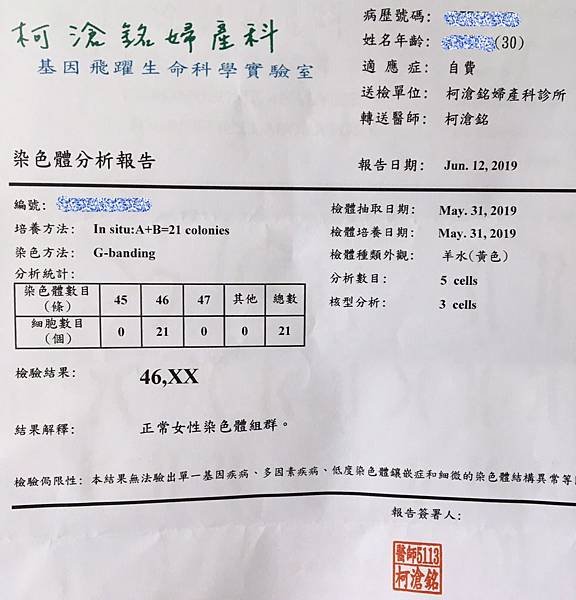 柯滄銘婦產科
基因飛躍生命科學實驗室
病歷號碼:
姓名年齡: (30)
適應症: 自費
送檢單位: 柯滄銘婦產科診所
轉送醫師: 柯滄銘
染色體分析報告
報告日期: Jun. 12, 2019
編號:
檢體抽取日期: May. 31, 2019
培養方法: In situ:A+B=21 colonies
檢體培養日期: May. 31, 2019
染色方法: G-banding
檢體種類外觀: 羊水(黃色)
分析統計:
分析數目: 5 cells
染色體數目(條) 45 46 47 其他 總數
核型分析: 3 cells
細胞數目(個) 0 21 0 0 21
檢驗結果: 46,XX
結果解釋: 正常女性染色體組群。
檢驗侷限性: 本結果無法驗出單一基因疾病、多因素疾病、低度染色體鑲嵌症和細微的染色體結構異常等
報告簽署人:
醫師5113
柯滄銘